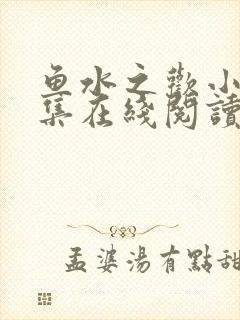 魚水之歡小
集在綫閱讀
孟婆湯有點甜